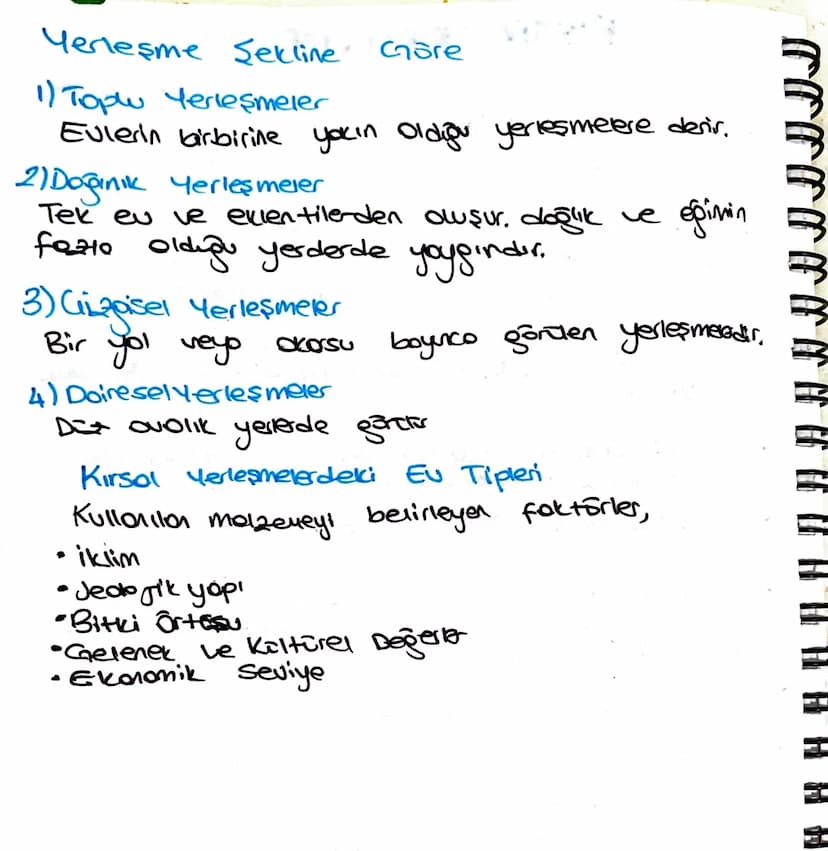 Yerleşme Şekline Göre
1) Toplu Yerleşmeler
Evlerin birbirine yakın olduğu yerleşmelere denir.
2) Dağınık Yerleşmeler
Tek ev ve eklentilerden oluşur. dağlık ve eğimin
fazla olduğu yerlerde yaygındır.
3) Çizgisel Yerleşmeler
Bir yol veya akarsu boyunca görülen yerleşmelerdir.
4) Dairesel Yerleşmeler
Düz ovalık yerlerde görülür
Kırsal Yerleşmelerdeki Ev Tipleri
Kullanılan malzemeyi belirleyen faktörler,
• iklim
• Jeolojik yapı
• Bitki Örtüsü
• Gelenek ve Kültürel Değerler
• Ekonomik Seviye